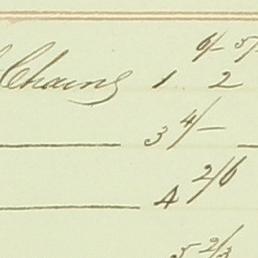 Chains 1 6/- 2 5/
3 4/-
4 2/6
5 2/3